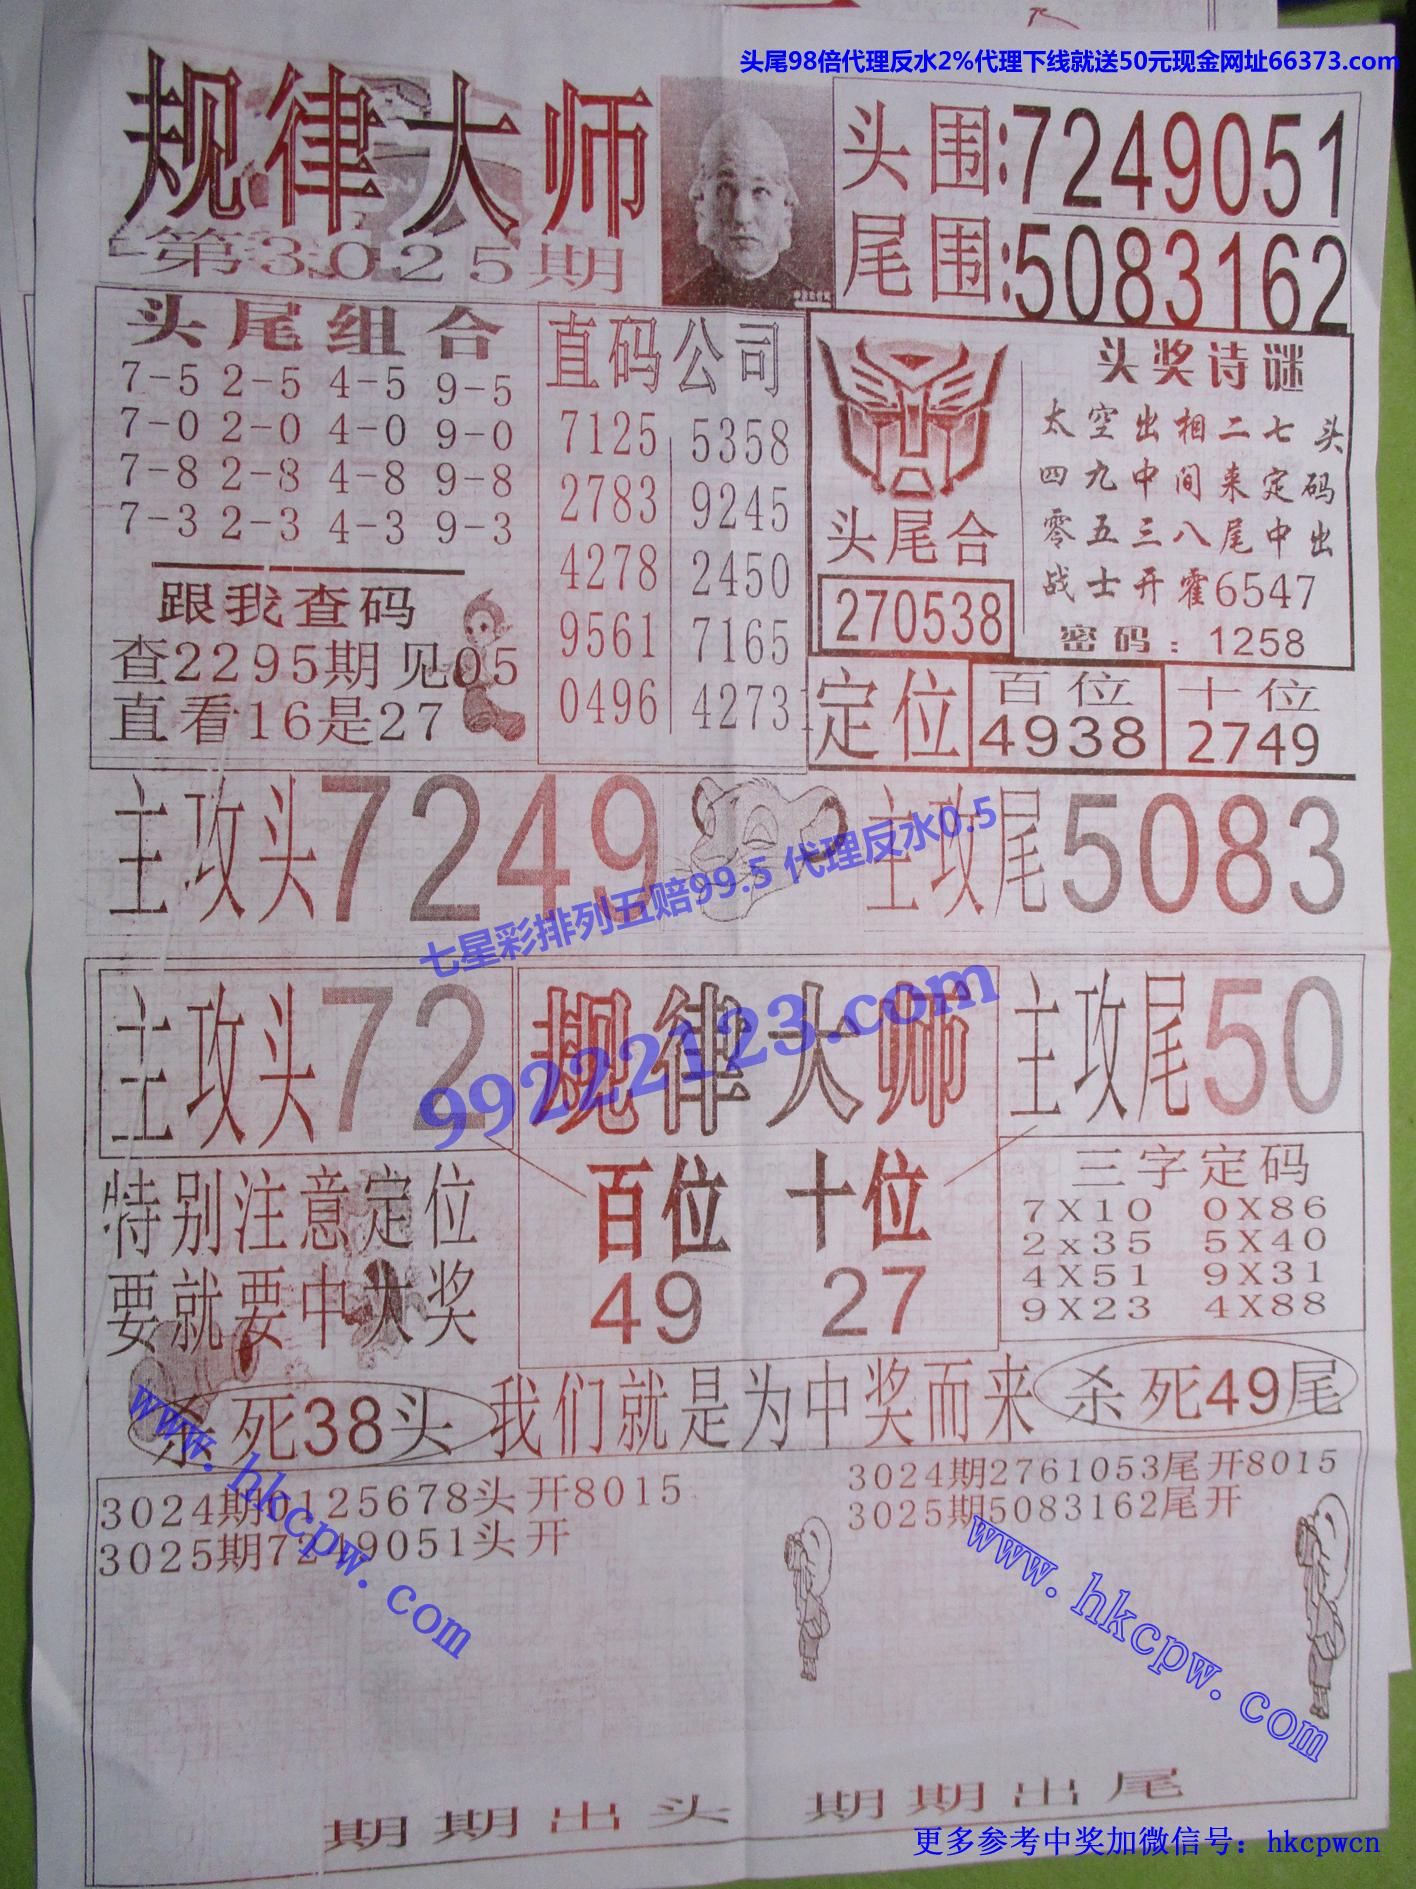 头尾98倍代理反水2%代理下线就送50元现金网址66373.com
规律大师
第3025期
头围:7249051
尾围:5083162
头尾组合
7-5 2-5 4-5 9-5
7-0 2-0 4-0 9-0
7-8 2-8 4-8 9-8
7-3 2-3 4-3 9-3
跟我查码
查2295期见05
直看16是27
直码公司
7125 5358
2783 9245
4278 2450
9561 7165
0496 4273
头尾合
270538
头奖诗谜
太空出相二七头
四九中间来定码
零五三八尾中出
战士开霍6547
密码:1258
定位
百位
4938
十位
2749
主攻头7249
主攻尾5083
七星彩排列五赔99.5 代理反水0.5
99222123.com
主攻头72
规律大师
主攻尾50
特别注意定位
要就要中大奖
百位 十位
49 27
三字定码
7X10 0X86
2x35 5X40
4X51 9X31
9X23 4X88
杀死38头
我们就是为中奖而来
杀死49尾
3024期0125678头开8015
3025期7249051头开
3024期2761053尾开8015
3025期5083162尾开
www.hkcpw.com
www.hkcpw.com
期期出头 期期出尾
更多参考中奖加微信号：hkcpwcn